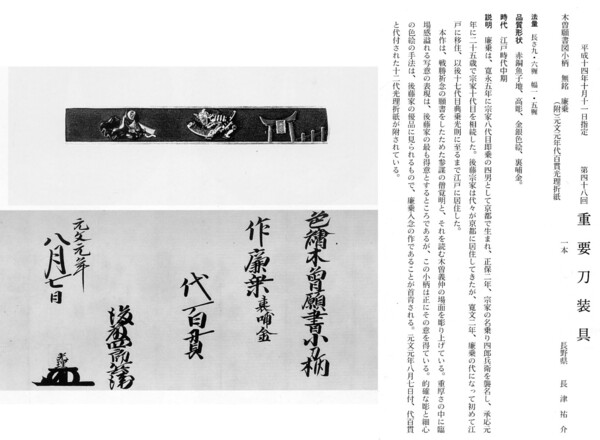 平成十四年十月十一日指定
第四十八回 重要刀装具
木曽願書図小柄 無銘 廉乗
(附)元文元年代百貫光理折紙
一本
長野県 長津祐介
法量 長さ九・六糎 幅一・五糎
品質形状 赤銅魚子地、高彫、金銀色絵、裏哺金。
時代 江戸時代中期
説明 廉乗は、寛永五年に宗家八代目即乗の四男として京都で生まれ、正保二年、宗家の名乗り四郎兵衛を襲名し、承応元
年に二十五歳で宗家十代目を相続した。後藤宗家は代々が京都に居住してきたが、寛文二年、廉乗の代になって初めて江
戸に移住、以後十七代目典乗光則に至るまで江戸に居住した。
本作は、戦勝祈念の願書をしたためた参謀の僧覚明と、それを読む木曽義仲の場面を彫り上げている。重厚さの中に臨
場感溢れる写意の表現は、後藤家の最も得意とするところであるが、この小柄は正にその意を得ている。的確な彫と細心
の色絵の手法は、後藤家の優品に見られるもので、廉乗入念の作であることが首肯される。元文元年八月七日付、代百貫
と代付された十二代光理折紙が附されている。
色繪木曽願書小刀柄
作廉乗 裏哺金
代百貫
元文元年
八月七日